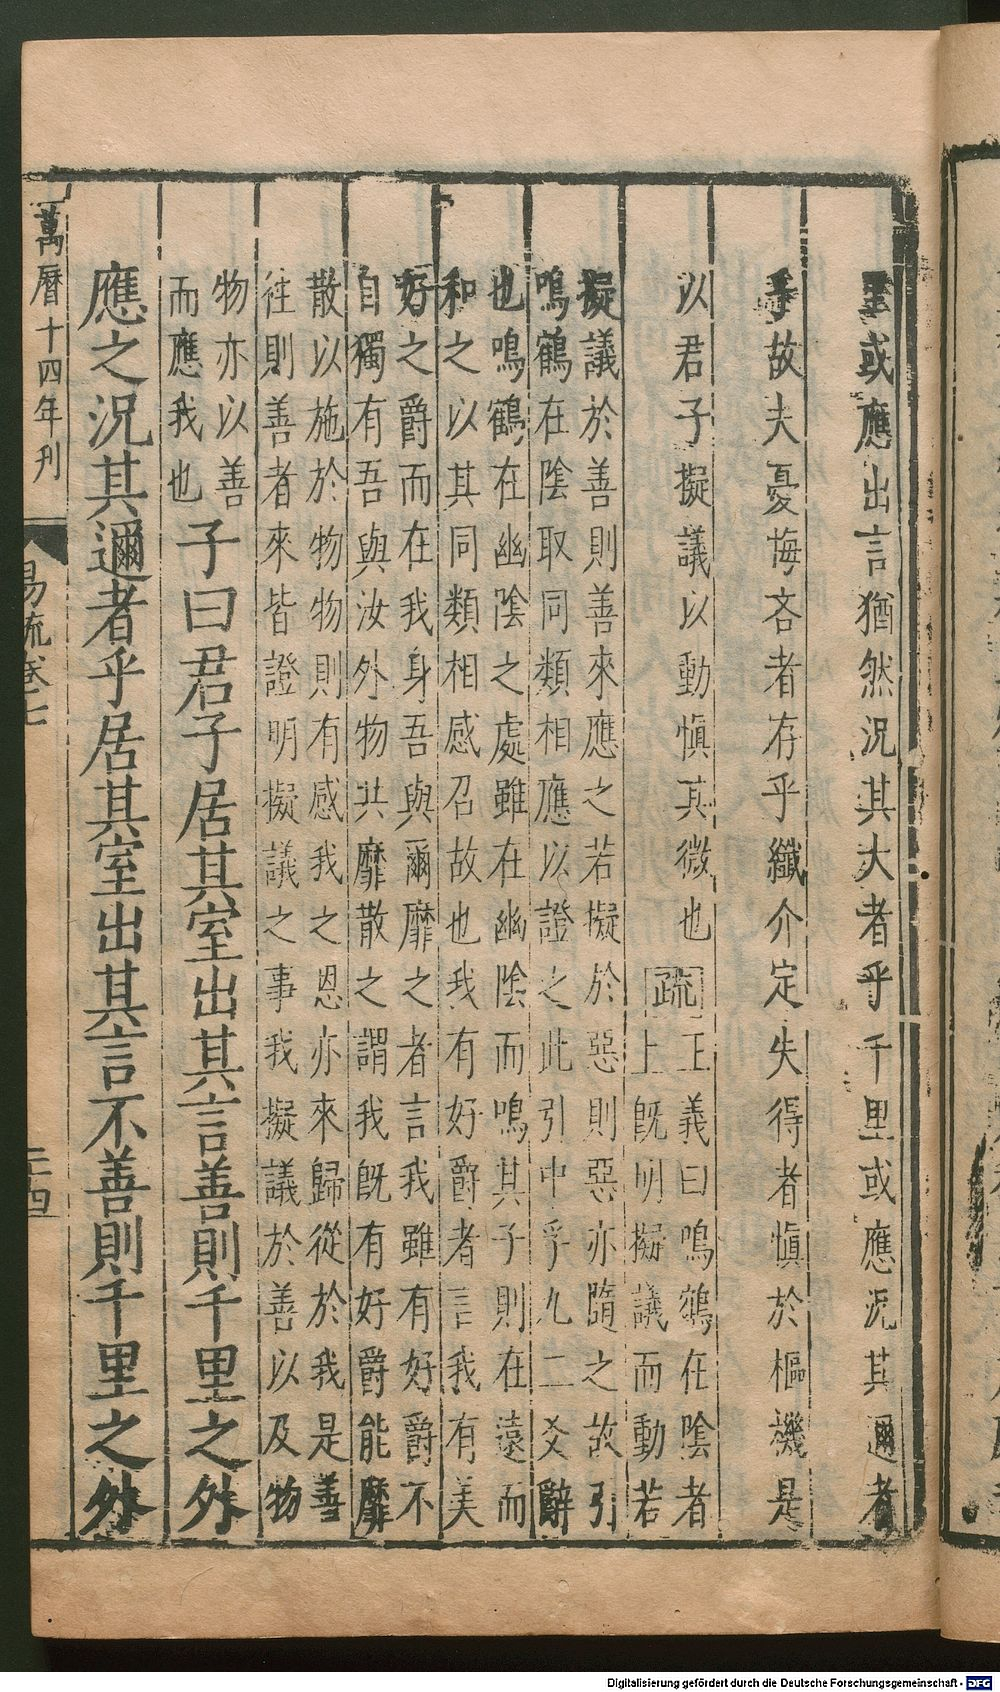 里或應出言猶然況其大者乎千里或應況其邇者
乎故夫憂悔吝者存乎纖介定失得者慎於樞機是
以君子擬議以動慎其微也
疏
正義曰鳴鶴在隂者
上旣明擬議而動若
擬議於善則善來應之若擬於惡則惡亦隨之故引
鳴鶴在隂取同類相應以證之此引中孚九二爻辭
也鳴鶴在幽隂之處雖在幽隂而鳴其子則在遠而
和之以其同類相感召故也我有好爵者言我有美
好之爵而在我身吾與爾靡之者言我雖有好爵不
自獨有吾與汝外物共靡散之謂我旣有好爵能靡
散以施於物物則有感我之恩亦來歸從於我是善
往則善者來皆證明擬議之事我擬議於善以及物
物亦以善
而應我也
子曰君子居其室出其言善則千里之外
應之況其邇者乎居其室出其言不善則千里之外
萬曆十四年刊
易疏卷七
二四
Digitalisierung gefördert durch die Deutsche Forschungsgemeinschaft - DFG